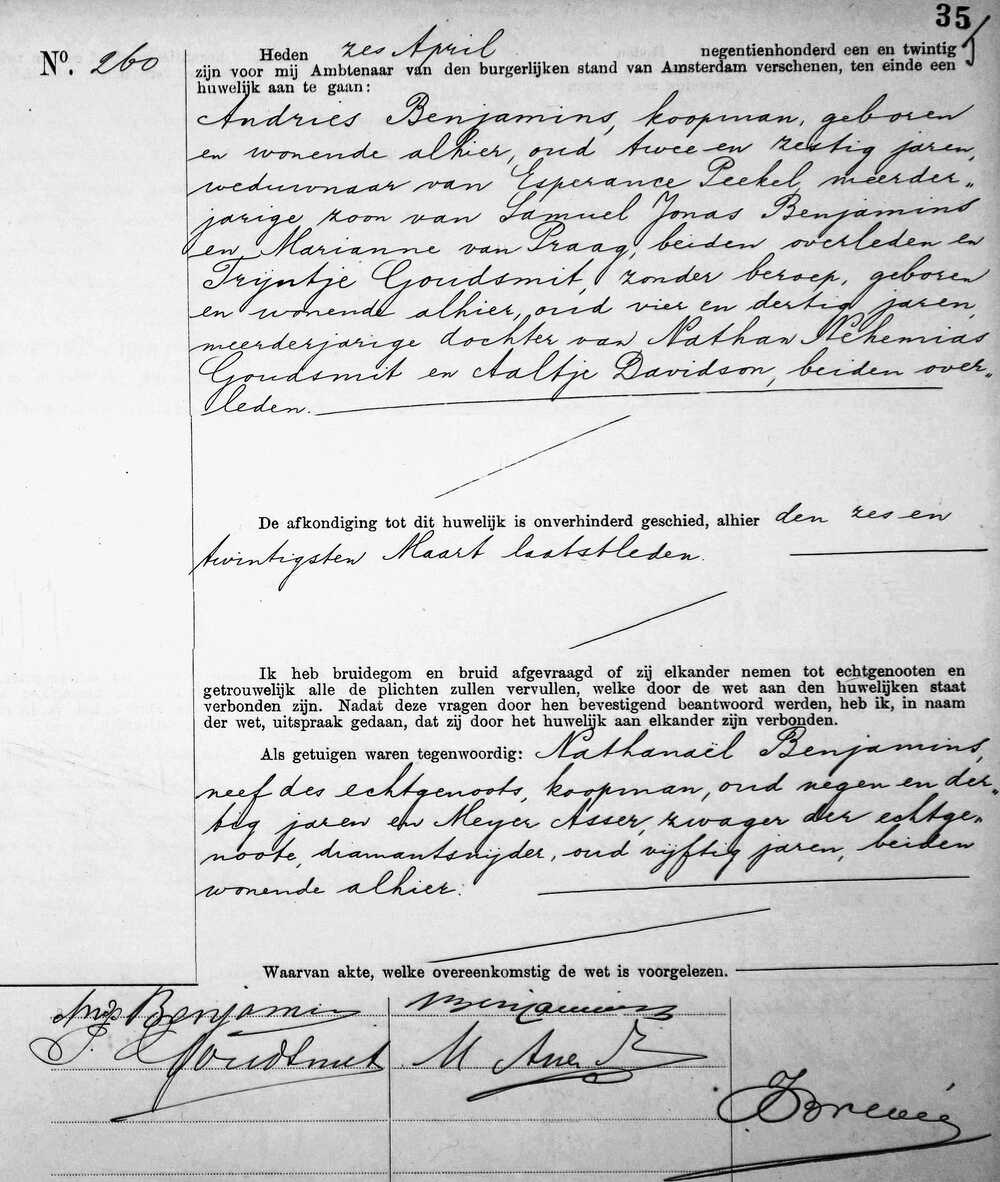 35
No. 260
Heden zes April negentienhonderd een en twintig
zijn voor mij Ambtenaar van den burgerlijken stand van Amsterdam verschenen, ten einde een
huwelijk aan te gaan:
Andries Benjamins, koopman, geboren
en wonende alhier, oud twee en zestig jaren,
weduwnaar van Esperance Peekel, meerder„
jarige zoon van Samuel Jonas Benjamins
en Marianne van Praag, beiden overleden en
Trijntje Goudsmit, zonder beroep, geboren
en wonende alhier, oud vier en dertig jaren,
meerderjarige dochter van Nathan Nehemias
Goudsmit en Aaltje Davidson, beiden over„
leden.
De afkondiging tot dit huwelijk is onverhinderd geschied, alhier den zes en
twintigsten Maart laatstleden.
Ik heb bruidegom en bruid afgevraagd of zij elkander nemen tot echtgenooten en
getrouwelijk alle de plichten zullen vervullen, welke door de wet aan den huwelijken staat
verbonden zijn. Nadat deze vragen door hen bevestigend beantwoord werden, heb ik, in naam
der wet, uitspraak gedaan, dat zij door het huwelijk aan elkander zijn verbonden.
Als getuigen waren tegenwoordig: Nathanaël Benjamins,
neef des echtgenoots, koopman, oud negen en der„
tig jaren en Meyer Asser, zwager der echtge„
noote, diamantsnijder, oud vijftig jaren, beiden
wonende alhier.
Waarvan akte, welke overeenkomstig de wet is voorgelezen.
Benjamins
Benjamins
Goudsmit
M Asser